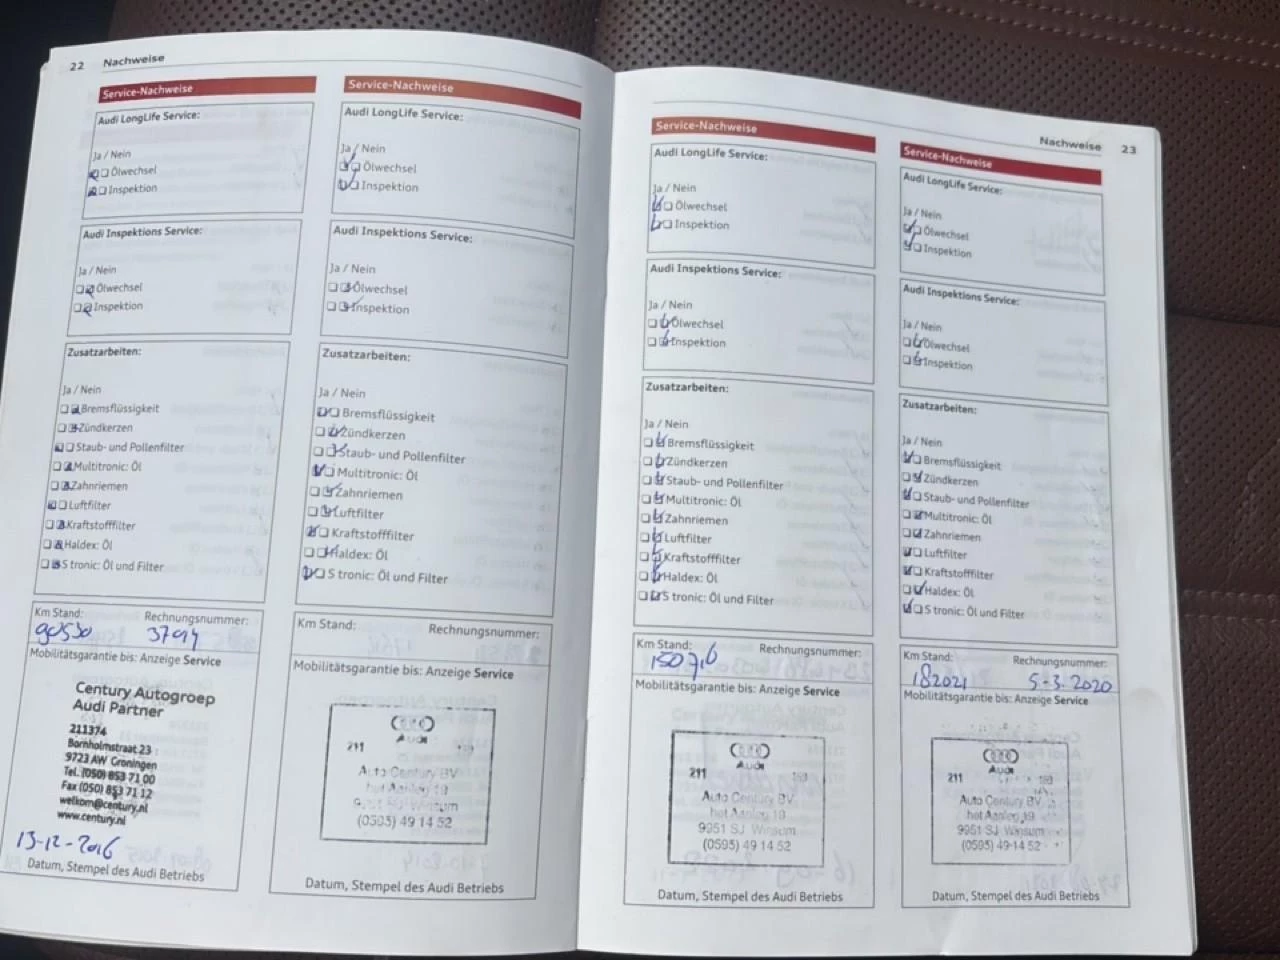 22 Nachweise
Service-Nachweise
Audi LongLife Service:
Ja / Nein
Ölwechsel
Inspektion
Audi Inspektions Service:
Ja / Nein
Ölwechsel
Inspektion
Zusatzarbeiten:
Ja / Nein
Bremsflüssigkeit
Zündkerzen
Staub- und Pollenfilter
Multitronic: Öl
Zahnriemen
Luftfilter
Kraftstofffilter
Haldex: Öl
S tronic: Öl und Filter
Km Stand: Rechnungsnummer:
90530
Mobilitätsgarantie bis: Anzeige Service
Century Autogroep
Audi Partner
211374
Bornholmstraat 23
9723 AW Groningen
Tel. (050) 853 71 00
Fax (050) 853 71 12
welkom@century.nl
www.century.nl
13-12-2016
Datum, Stempel des Audi Betriebs
Service-Nachweise
Audi LongLife Service:
Ja / Nein
Ölwechsel
Inspektion
Audi Inspektions Service:
Ja / Nein
Ölwechsel
Inspektion
Zusatzarbeiten:
Ja / Nein
Bremsflüssigkeit
Zündkerzen
Staub- und Pollenfilter
Multitronic: Öl
Zahnriemen
Luftfilter
Kraftstofffilter
Haldex: Öl
S tronic: Öl und Filter
Km Stand: Rechnungsnummer:
Mobilitätsgarantie bis: Anzeige Service
Audi
211
Auto Century BV
het Aanleg 19
Winsum
(0595) 49 14 52
Datum, Stempel des Audi Betriebs
Nachweise 23
Service-Nachweise
Audi LongLife Service:
Ja / Nein
Ölwechsel
Inspektion
Audi Inspektions Service:
Ja / Nein
Ölwechsel
Inspektion
Zusatzarbeiten:
Ja / Nein
Bremsflüssigkeit
Zündkerzen
Staub- und Pollenfilter
Multitronic: Öl
Zahnriemen
Luftfilter
Kraftstofffilter
Haldex: Öl
S tronic: Öl und Filter
Km Stand: Rechnungsnummer:
Mobilitätsgarantie bis: Anzeige Service
Audi
211
Auto Century BV
het Aanleg 19
9951 SJ Winsum
(0595) 49 14 52
Datum, Stempel des Audi Betriebs
Service-Nachweise
Audi LongLife Service:
Ja / Nein
Ölwechsel
Inspektion
Audi Inspektions Service:
Ja / Nein
Ölwechsel
Inspektion
Zusatzarbeiten:
Ja / Nein
Bremsflüssigkeit
Zündkerzen
Staub- und Pollenfilter
Multitronic: Öl
Zahnriemen
Luftfilter
Kraftstofffilter
Haldex: Öl
S tronic: Öl und Filter
Km Stand: Rechnungsnummer:
182021 5-3.2020
Mobilitätsgarantie bis: Anzeige Service
Audi
211
Auto Century BV
het Aanleg 19
9951 SJ Winsum
(0595) 49 14 52
Datum, Stempel des Audi Betriebs